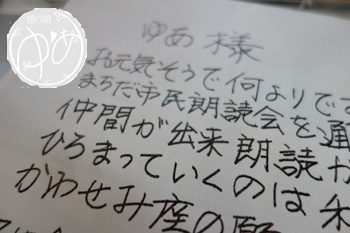 語り部
ゆあ
ゆあ 様
お元気そうで何よりです
まちだ市民朗読会を通
仲間が出来朗読か
ひろまっていくのは
かわせみ座の願